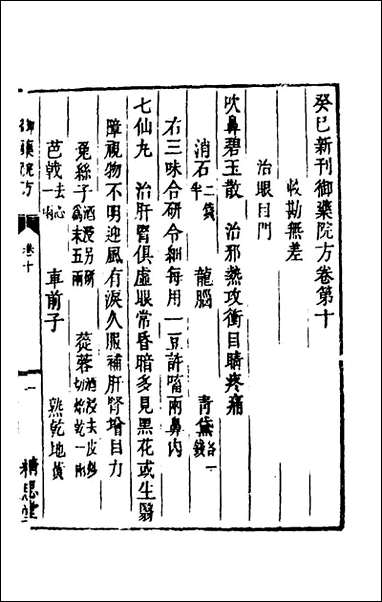 癸巳新刊御藥院方卷第十
校勘無差
治眼目門
吹鼻碧玉散　治邪熱攻衝目睛疼痛
消石二錢半　龍腦　青黛各一錢
右三味合研令細每用一豆許㗜兩鼻內
七仙丸　治肝腎俱虛眼常昏暗多見黑花或生翳
障視物不明迎風有淚久服補肝腎增目力
兔絲子酒浸另研為末五兩　蓯蓉酒浸去皮炒切焙乾一兩
芭戟去心一兩　車前子　熟乾地黃
御藥院方　卷十　一　精思堂